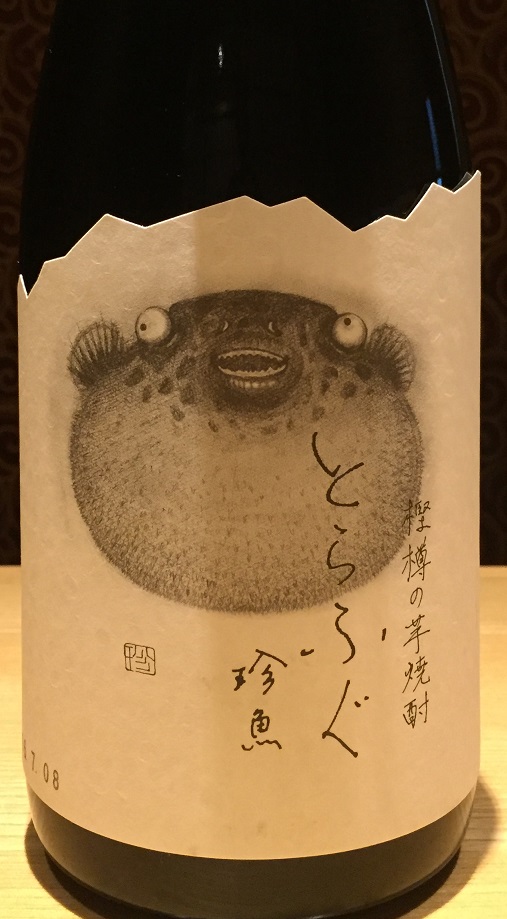 樫樽の芋焼酎
とらふぐ
珍魚
7.08